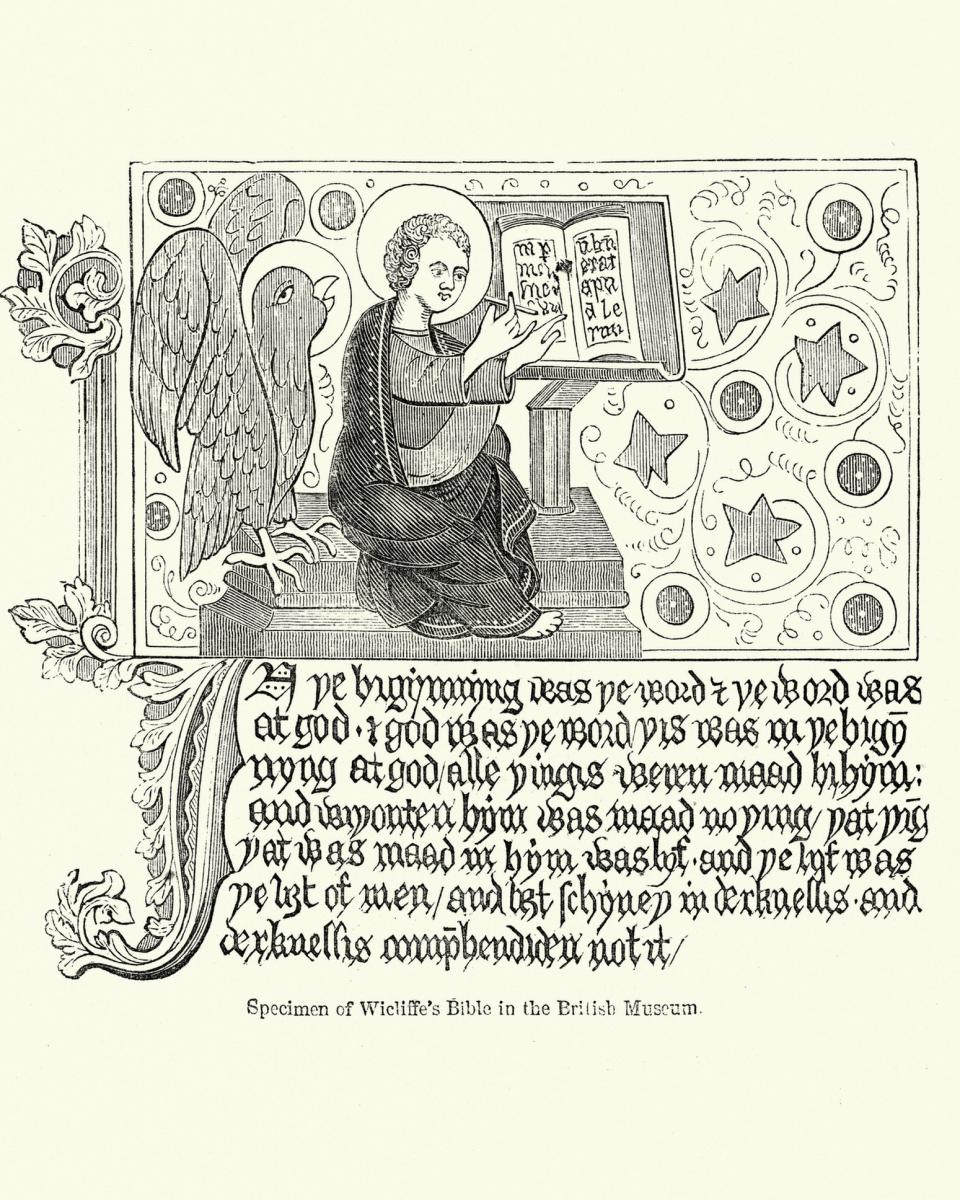 erat
IN ye bigẏnnẏng was ye word ⁊ ye word was
at god · ⁊ god was ye word/ yis was in ye bigẏ̄
nyng at god/ alle yingis weren maad bi hẏm:
and wiyouten hẏm was maad no ying/ yat yīg
yat was maad in hẏm was lyf · and ye lyf was
ye liȝt of men/ and liȝt schẏney in derknessis · and
derknessis comp̄hendiden not it/
Specimen of Wicliffe's Bible in the British Museum.